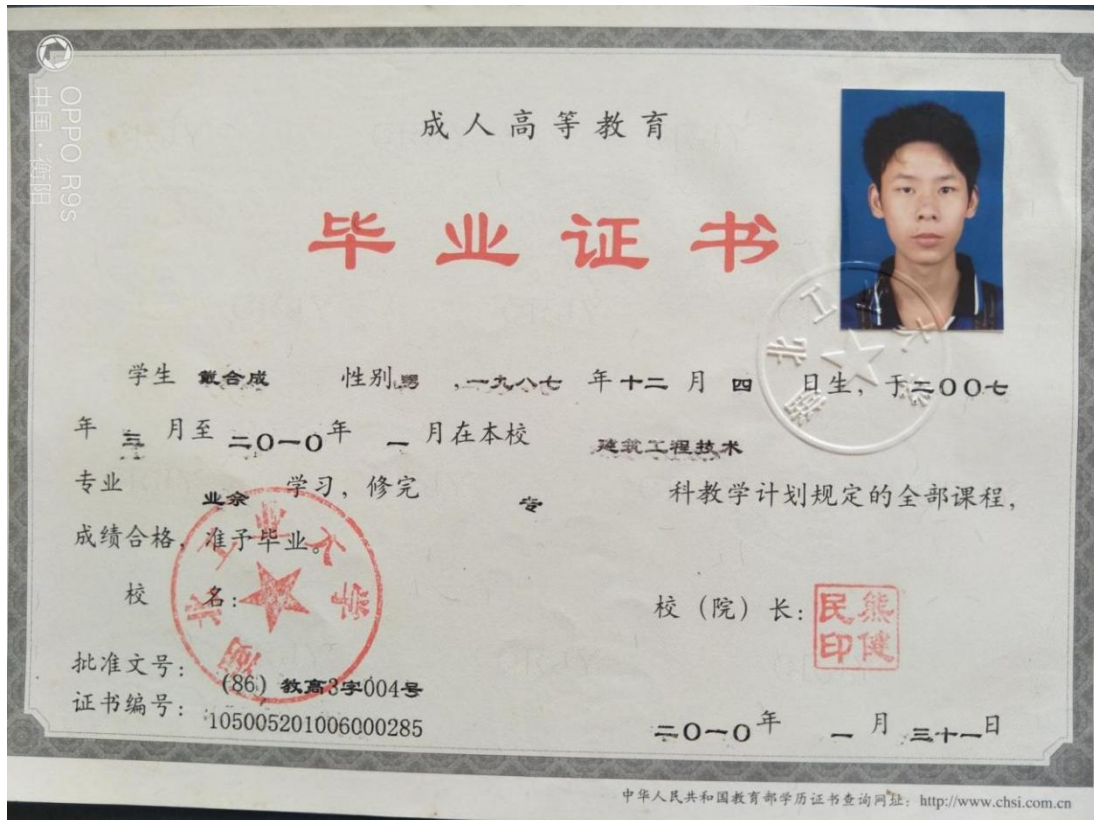 OPPO R9s
中国·衡阳
成人高等教育
毕业证书
学生 戴合成 性别 男 ,一九八七 年 十二 月 四 日生，于二〇〇七
年 三 月至 二〇一〇年 一 月在本校 建筑工程技术
专业 业余 学习，修完 专 科教学计划规定的全部课程，
成绩合格，准予毕业。
校 名：
湖北工业大学
湖北工业大学
校（院）长：
熊健民印
批准文号：(86) 教高3字004号
证书编号：105005201006000285
二〇一〇年 一 月 三十一日
中华人民共和国教育部学历证书查询网址：http://www.chsi.com.cn